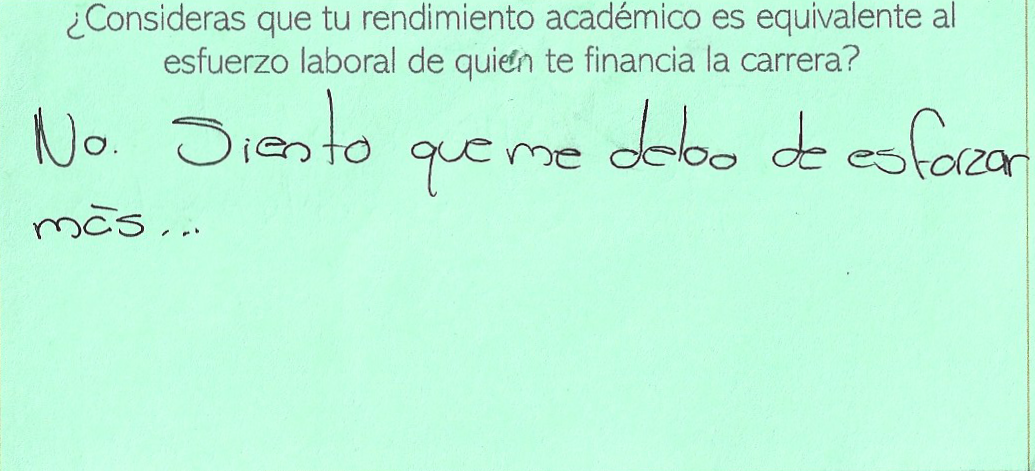 ¿Consideras que tu rendimiento académico es equivalente al
esfuerzo laboral de quién te financia la carrera?
No. Siento que me debo de esforzar
más...